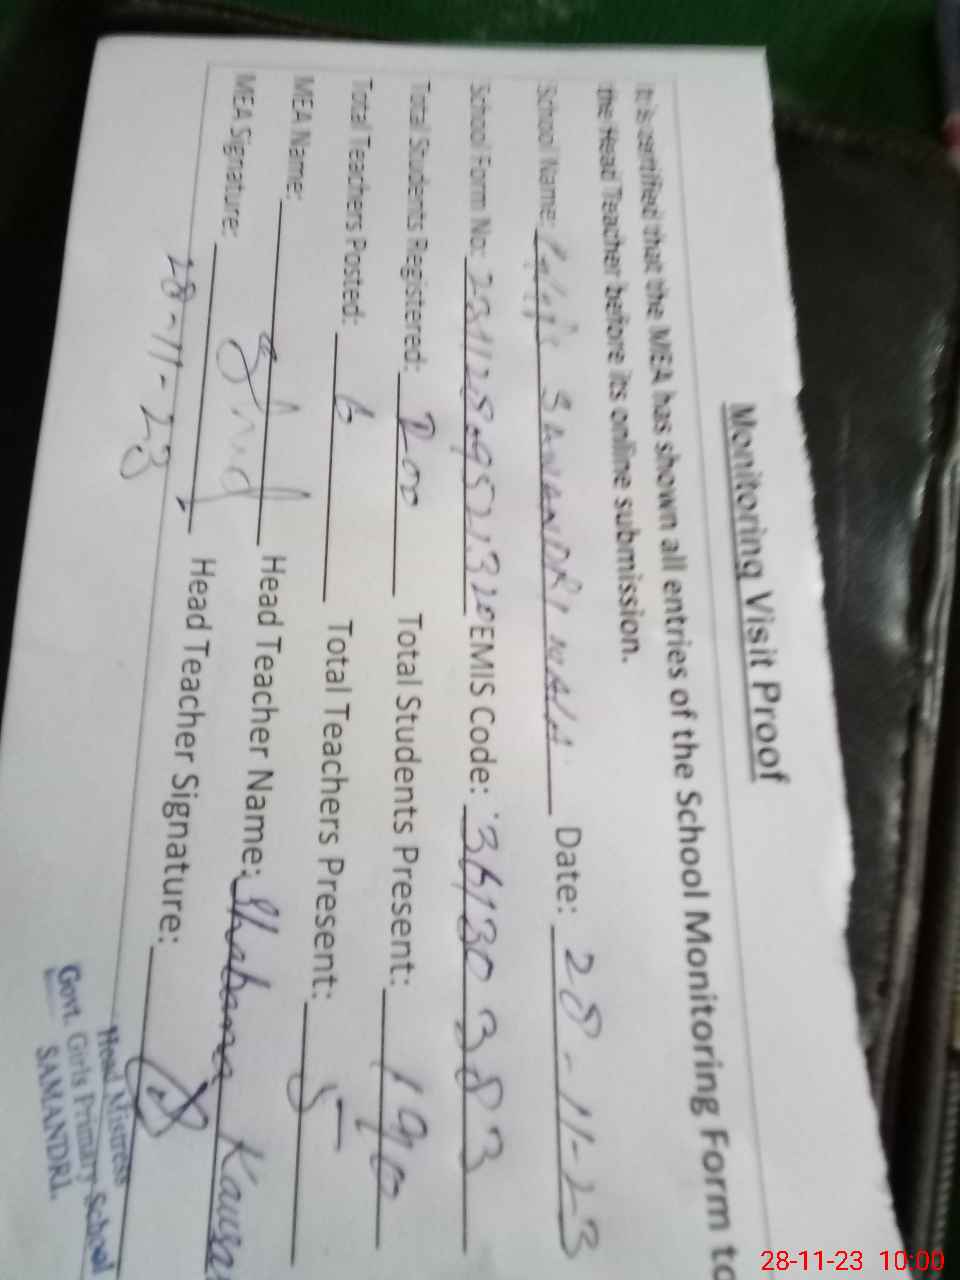 Monitoring Visit Proof
It is certified that the MEA has shown all entries of the School Monitoring Form to
the Head Teacher before its online submission.
School Name: Date: 28-11-23
School Form No: EMIS Code: 36130383
Total Students Registered: 200 Total Students Present: 190
Total Teachers Posted: 6 Total Teachers Present: 5
MEA Name: Head Teacher Name: Shabana Kausar
MEA Signature: Head Teacher Signature:
28-11-23
Head Mistress
Govt. Girls Primary School
SAMANDRI.
28-11-23 10:00